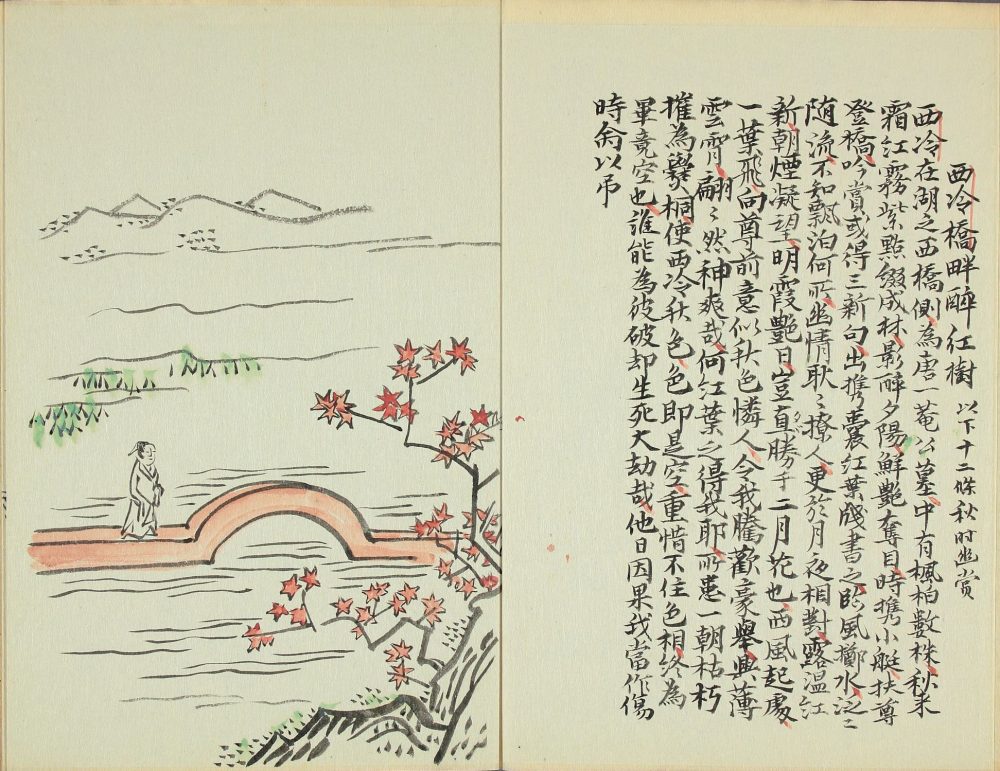 西泠橋畔醉紅樹 以下十二條秋時幽賞
西泠在湖之西橋側為唐一菴公墓中有楓柏數株秋來
霜紅霧紫點綴成林影醉夕陽鮮艷奪目時携小艇扶尊
登橋吟賞或得三新句出携囊紅葉牋書之臨風擲水泛〻
随流不知飄泊何所幽情耿〻撩人更於月夜相對露温紅
新朝煙凝望明霞艷日豈直勝于二月花也西風起處
一葉飛向尊前意似秋色憐人令我騰歡豪舉興薄
雲霄翩〻然神爽哉何紅葉之得我耶所患一朝枯朽
摧為爨桐使西泠秋色色即是空重惜不住色相終為
畢竟空也誰能為彼破却生死大劫哉他日因果我當作傷
時禽以吊